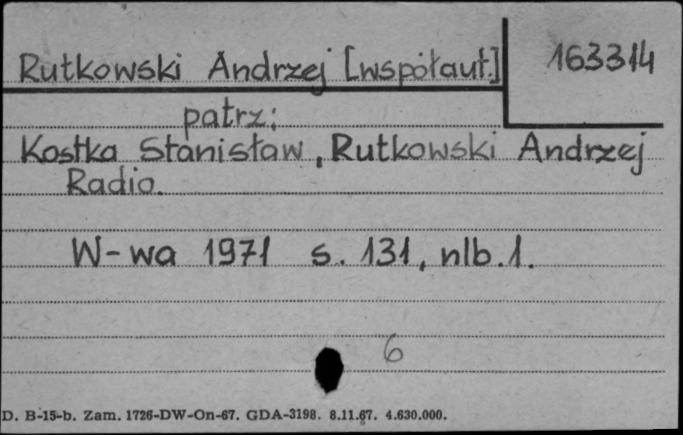 Rutkowski Andrzej [współaut.] 163314
patrz:
Kostka Stanisław, Rutkowski Andrzej
Radio.
W-wa 1971 s. 131, nlb. 1.
6
D. B-15-b. Zam. 1726-DW-On-67. GDA-3198. 8.11.67. 4.630.000.